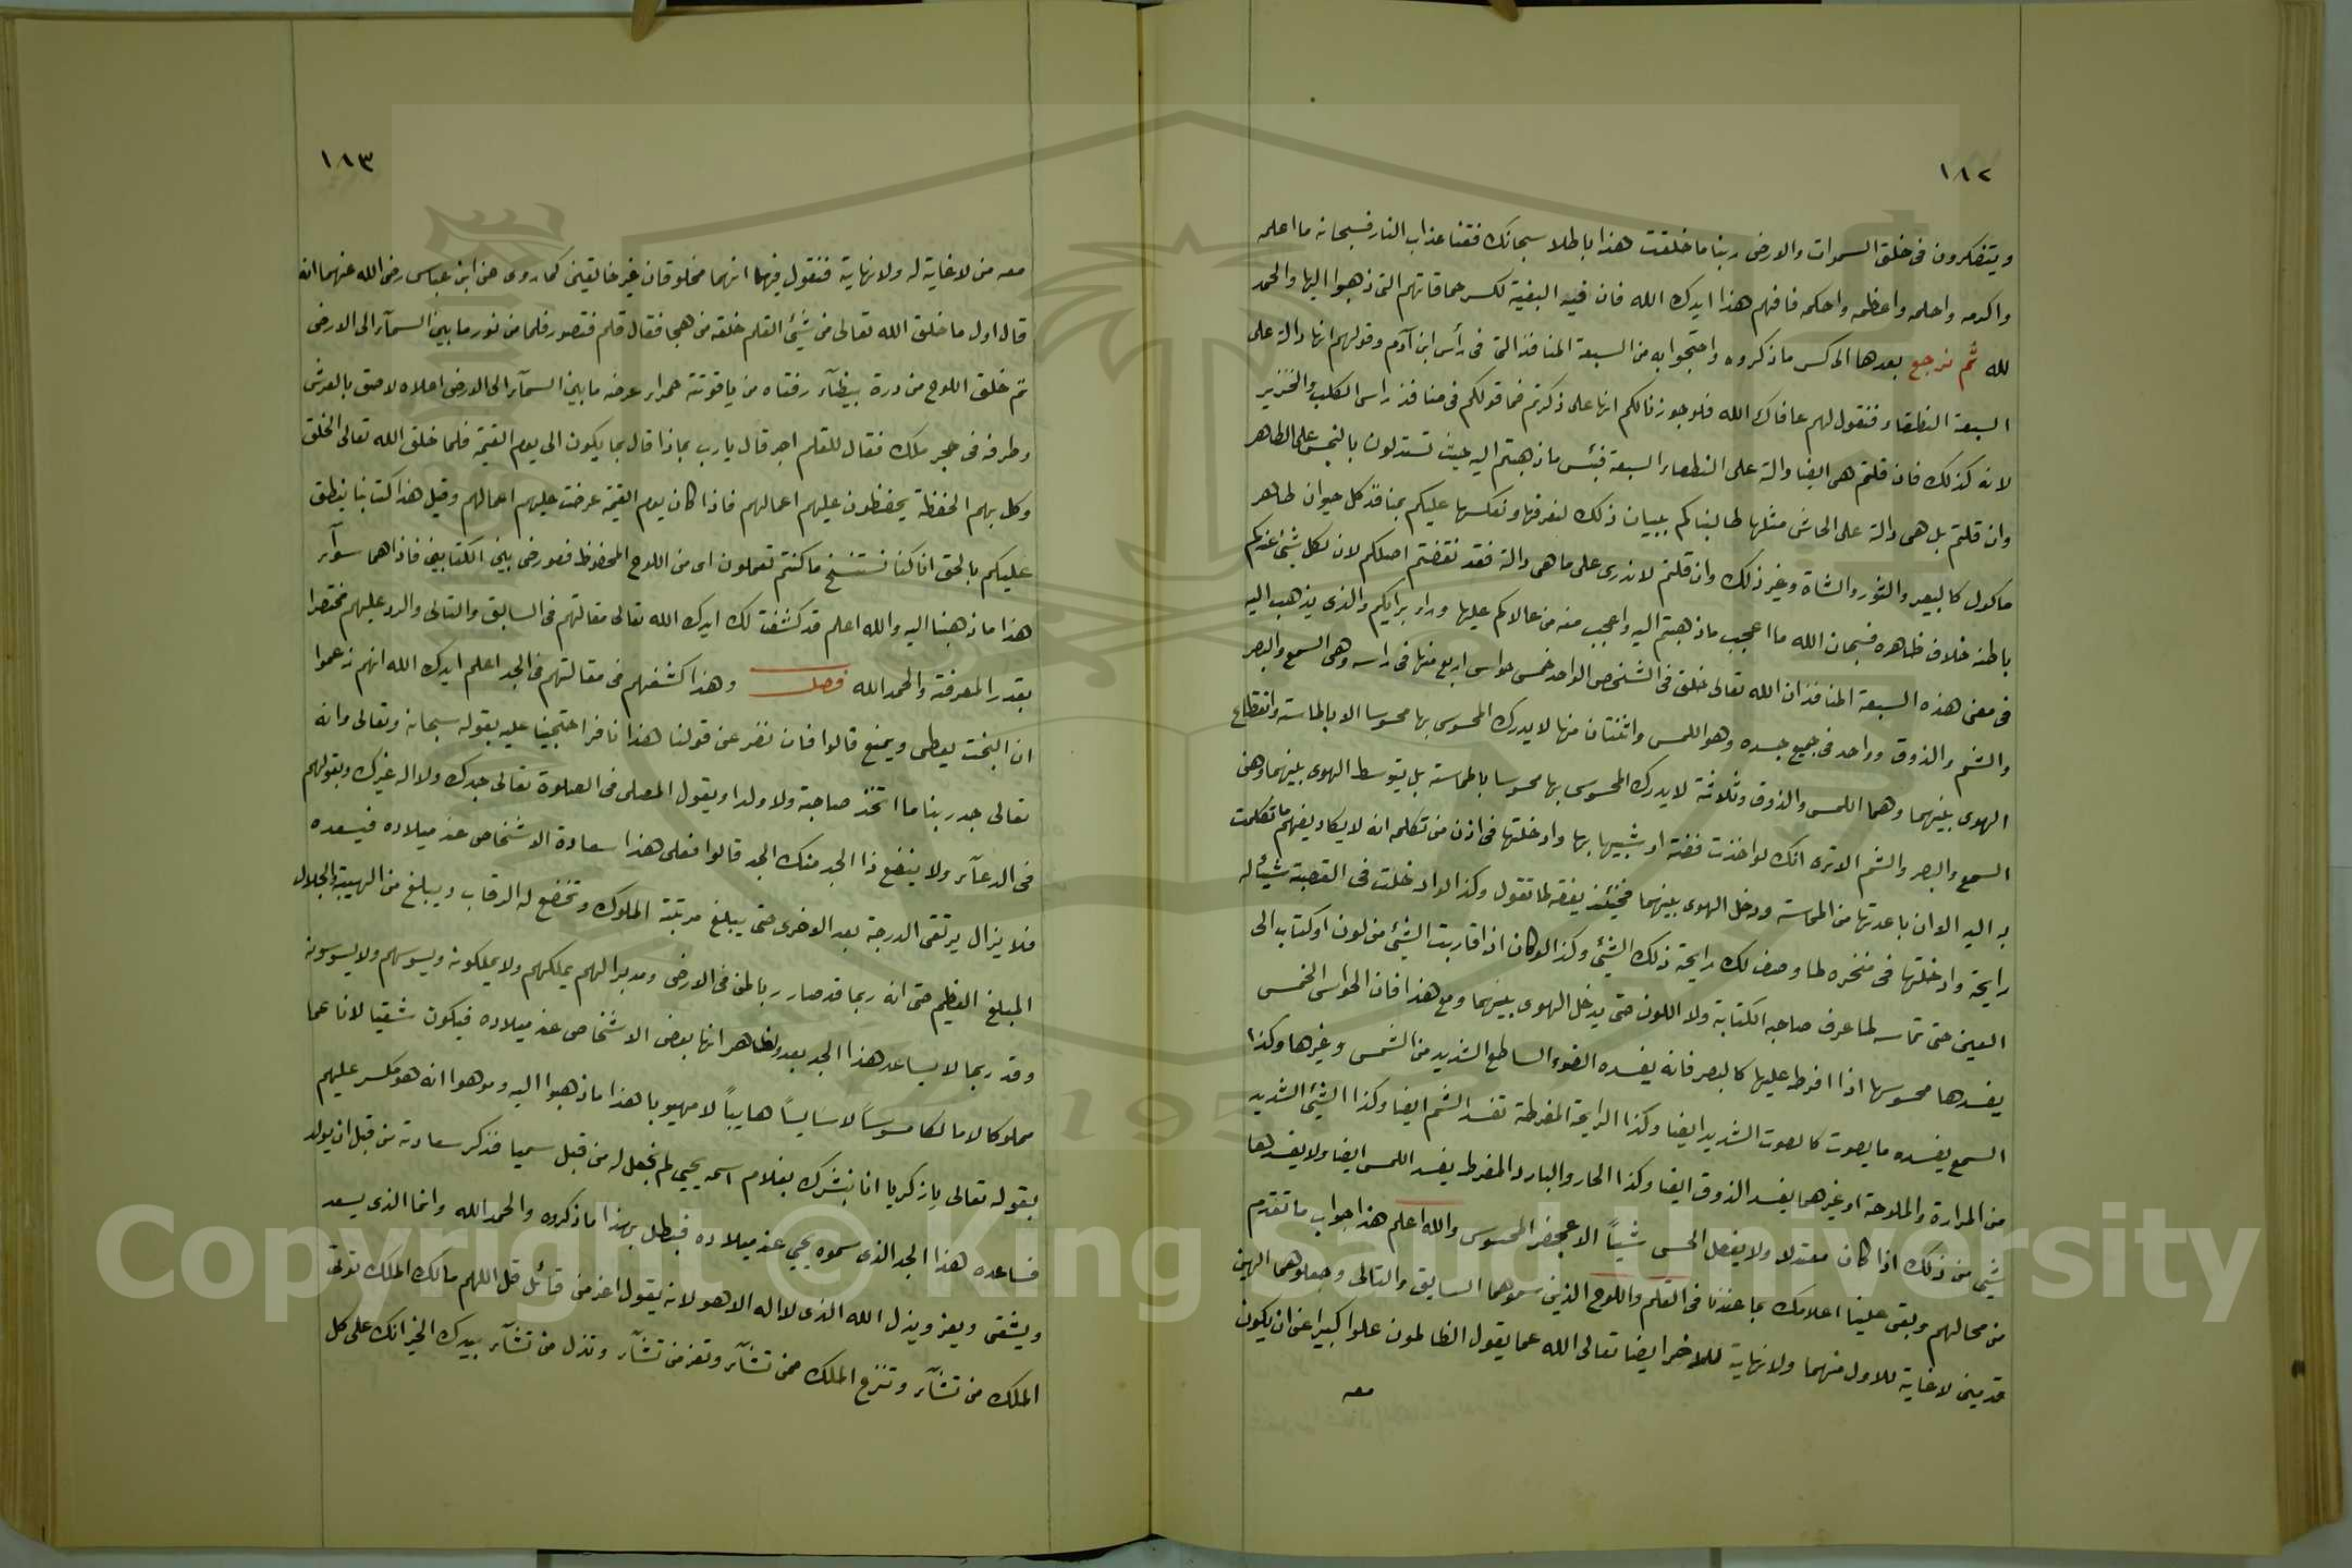 ١٨٢
ويتفكرون فى خلق السموات والارض ربنا ما خلقت هذا باطلا سبحانك فقنا عذاب النار فسبحانه ما اعلمه
واكرمه واحلمه واعظمه واحكمه فافهم هذا ايدك الله فان فيه البغية لكسر حماقاتهم التى ذهبوا اليها والحمد
لله ثم نرجع بعدها الى كسر ما ذكروه واحتجوا به من السبعة المنافذ التى فى رأس ابن آدم وقولهم انها دالة على
السبعة النطقاء فنقول لهم عافاك الله فلو جوزنا لكم انها على ذكرتم فما قولكم فى منافذ راس الكلب والخنزير
لانه كذلك فان قلتم هى ايضا دالة على النطقاء السبعة فبئس ما ذهبتم اليه حيث تستدلون بالنجس على الطاهر
وان قلتم بل هى دالة على اخاش مثلها طالبناكم ببيان ذلك لنعرفها ونعكسها عليكم بمنافذ كل حيوان طاهر
ماكول كالبعير والثور والشاة وغير ذلك وان قلتم لا ندرى على ما هى دالة فقد نقضتم اصلكم لان لكل شئ عندكم
باطنه خلاف ظاهره فسبحان الله ما اعجب ما ذهبتم اليه واعجب منه من عالاكم عليها وداء برايكم والذى يذهب اليه
فى معنى هذه السبعة المنافذ ان الله تعالى خلق فى الشخص الواحد خمس حواس اربع منها فى راسه وهى السمع والبصر
والشم والذوق وواحد فى جميع جسده وهو اللمس واثنتان منها لا يدرك المحسوس بها محسوسا الا بالماسة وانقطاع
الهوى بينهما وهما اللمس والذوق وثلاثة لا يدرك المحسوس بها محسوسا بالماسة بل يتوسط الهوى بينهما وهى
السمع والبصر والشم الا تره انك لو اخذت فضة او شبيها بها وادخلتها فى اذن من تكلمه انه لا يكاد يفهم ما تكلمت
به اليه الا وان باعدتها من المماسة ودخل الهوى بينهما فحينئذ يفقه لما تقول وكذا لو ادخلت فى القصبة شيئا له
رايحة وادخلتها فى منخره لما وصف لك رايحة ذلك الشئ وكذا لو كان اذا قاربت الشئ من لون او كتاب الى
العين حتى تماسه لما عرف صاحبه الكتابة ولا اللون حتى يدخل الهوى بينهما ومع هذا فان الحواس الخمس
يفسدها محسوسها اذا افرط عليها كالبصر فانه يفسده الضوء الساطع الشديد من الشمس وغيرها وكذا
السمع يفسده ما يصوت كالصوت الشديد ايضا وكذا الرايحة المفرطة تفسد الشم ايضا وكذا الشئ الشديد
من المرارة والملوحة او غيرهما يفسد الذوق ايضا وكذا الحار والبارد المفرط يفسد اللمس ايضا ولا يفسدها
شئ من ذلك اذا كان معتدلا ولا يفصل الحس شيأً الا بمحضر المحسوس والله اعلم هذا جواب ما تقدم
من محالهم وبقى علينا اعلامك بما عندنا فى القلم واللوح الذين سموهما السابق والتالى وجعلوهما الهين
قديمين لا غاية للاول منهما ولا نهاية للاخر ايضا تعالى الله عما يقول الظالمون علوا كبيرا عن ان يكون
معه
١٨٣
معه من لا غاية له ولا نهاية فنقول فيهما انهما مخلوقان غير خالقين كما روى عن ابن عباس رضى الله عنهما انه
قال اول ما خلق الله تعالى من شئ القلم خلقه من هجا فقال قلم فتصور قلما من نور ما بين السمآء الى الارض
ثم خلق اللوح من درة بيضآء دفتاه من ياقوتة حمراء عرضه ما بين السمآء الى الارض اعلاه لاصق بالعرش
وطرفه فى حجر ملك فقال للقلم اجر قال يا رب بماذا قال بما يكون الى يوم القيمة فلما خلق الله تعالى الخلق
وكل بهم الحفظة يحفظون عليهم اعمالهم فاذا كان يوم القيمة عرضت عليهم اعمالهم وقيل هذا كتابنا ينطق
عليكم بالحق انا كنا نستنسخ ما كنتم تعملون اى من اللوح المحفوظ فعورض بين الكتابين فاذا هما سوآء
هذا ما ذهبنا اليه والله اعلم قد كشفت لك ايدك الله تعالى مقالتهم فى السابق والتالى والرد عليهم مختصرا
بقدر المعرفة والحمد الله فصل وهذا كشفهم فى مقالتهم فى الجد اعلم ايدك الله انهم زعموا
ان البخت يعطى ويمنع قالوا فان نفر عن قولنا هذا نافر احتججنا عليه بقوله سبحانه وتعالى وانه
تعالى جد ربنا ما اتخذ صاحبة ولا ولدا ويقول المصلى فى الصلوة تعالى جدك ولا اله غيرك وبقولهم
فى الدعآء ولا ينفع ذا الجد منك الجد قالوا فعلى هذا سعادة الاشخاص عند ميلاده فيسعده
فلا يزال يرتقى الدرجة بعد الاخرى حتى يبلغ مرتبة الملوك وتخضع له الرقاب ويبلغ من الهيبة والجلال
المبلغ العظيم حتى انه ربما قد صار رباطن فى الارض ومدبرا لهم يملكهم ولا يملكونه ويسوسهم ولا يسوسونه
وقد ربما لا يساعد هذا الجد بعد ولظاهر انها بعض الاشخاص عند ميلاده فيكون شقيا لانا عما
مملوكا لا مالكا مسوساً لا سايساً هايباً لا مهيوبا هذا ما ذهبوا اليه وموهوا انه هو مكسر عليهم
بقوله تعالى يا زكريا انا نبشرك بغلام اسمه يحيي لم نجعل له من قبل سميا فذكر سعادته من قبل ان يولد
فساعده هذا الجد الذى سموه يحيي عند ميلاده فبطل بهذا ما ذكروه والحمد الله وانما الذى يسعد
ويشقى ويعز ويذل الله الذى لا اله الا هو لانه يقول اعز من قآئل قل اللهم مالك الملك توتى
الملك من تشآء وتنزع الملك ممن تشآء وتعز من تشآء وتذل من تشآء بيدك الخير انك على كل
Copyright © King Saud University
195